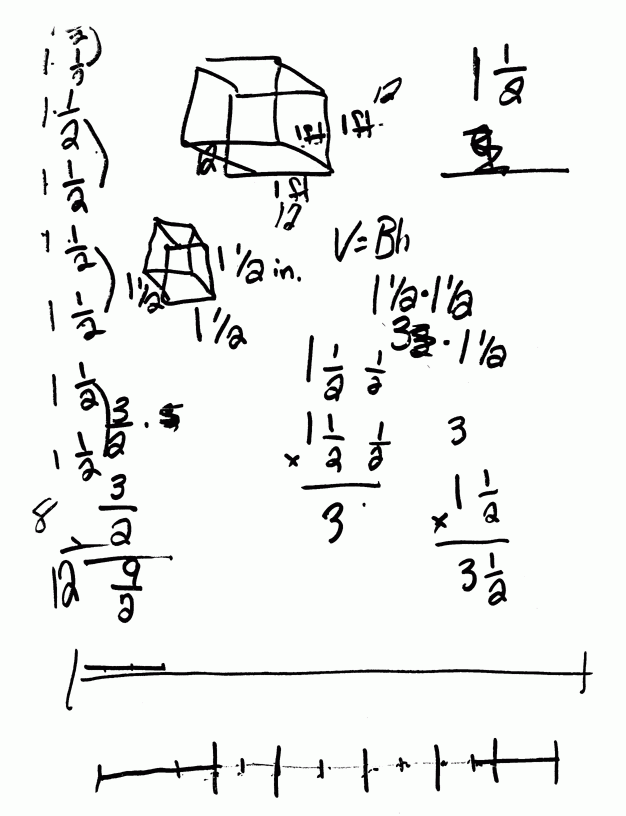 1 1/2
1 1/2
1 1/2
1 1/2
1 1/2
1 1/2
1 1/2
3/2 ·
3/2
8
12 9/2
1ft 1ft. 12
12
1ft
12
1 1/2 in.
1 1/2
1 1/2
1 1/2
V=Bh
1 1/2 · 1 1/2
3 · 1 1/2
1 1/2 1/2
x 1 1/2 1/2
3
3
x 1 1/2
3 1/2